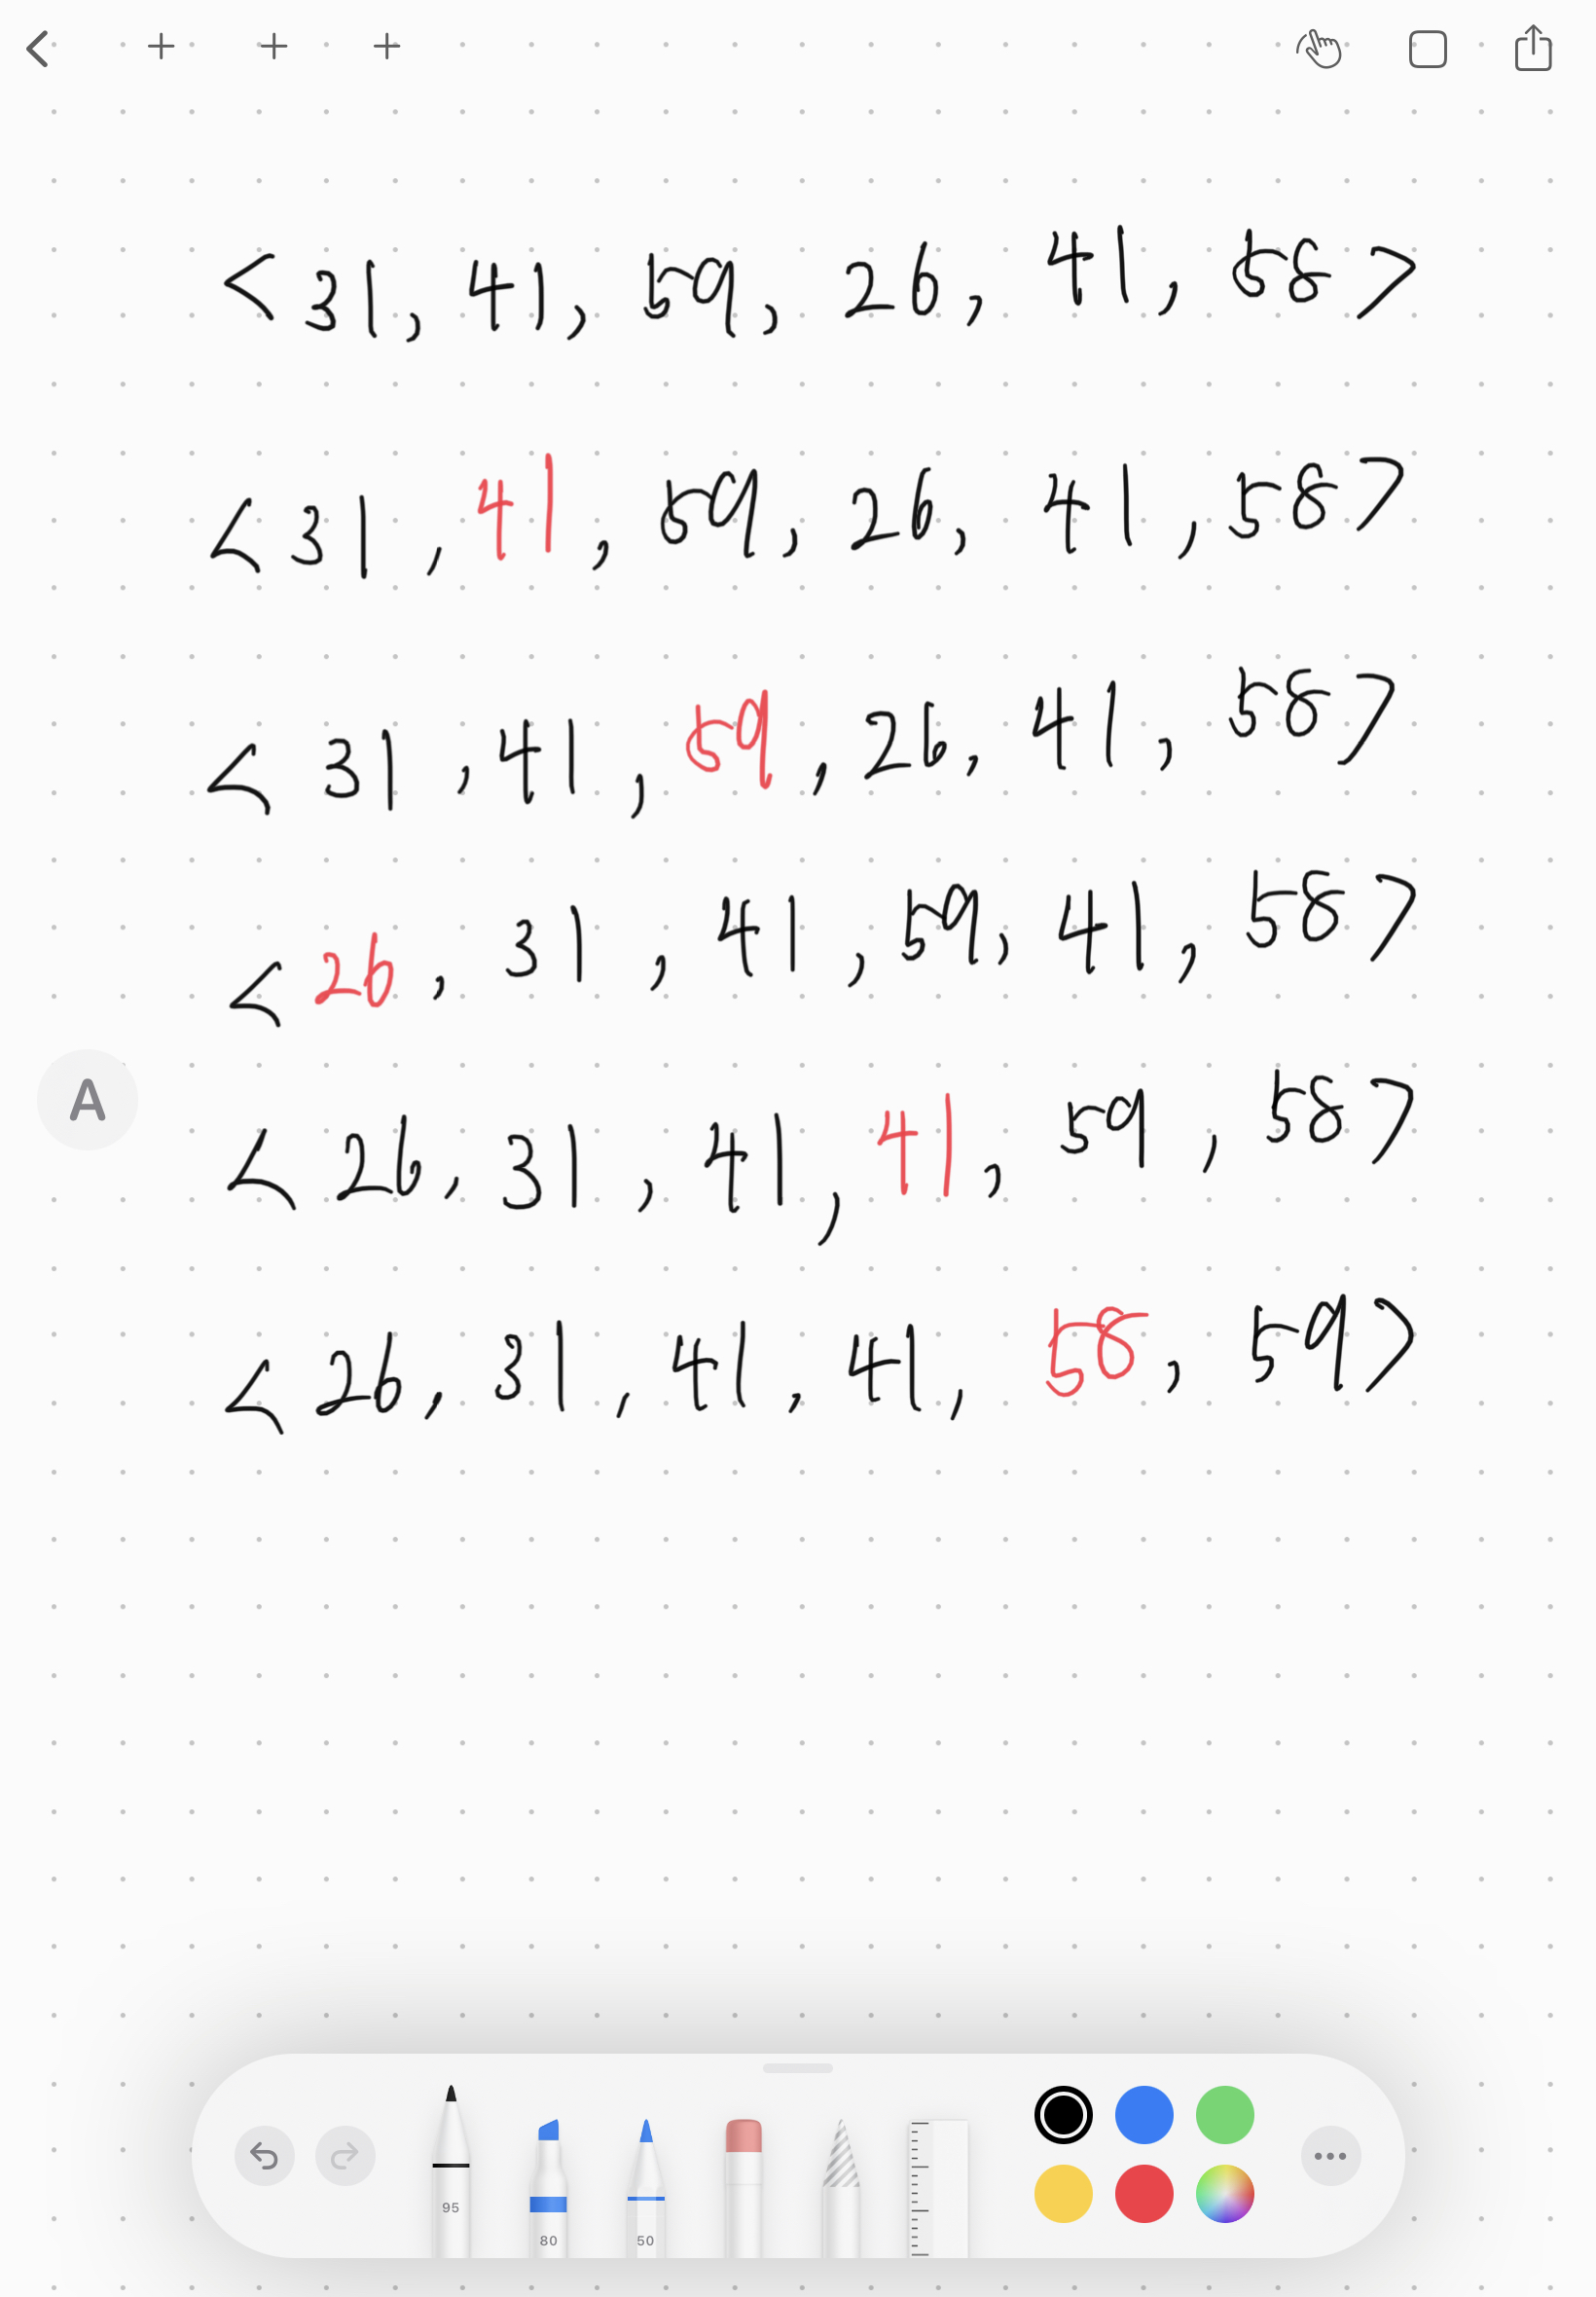 < 31, 41, 59, 26, 41, 58 >
< 31, 41, 59, 26, 41, 58 >
< 31, 41, 59, 26, 41, 58 >
< 26, 31, 41, 59, 41, 58 >
A
< 26, 31, 41, 41, 59, 58 >
< 26, 31, 41, 41, 58, 59 >
95
80
50